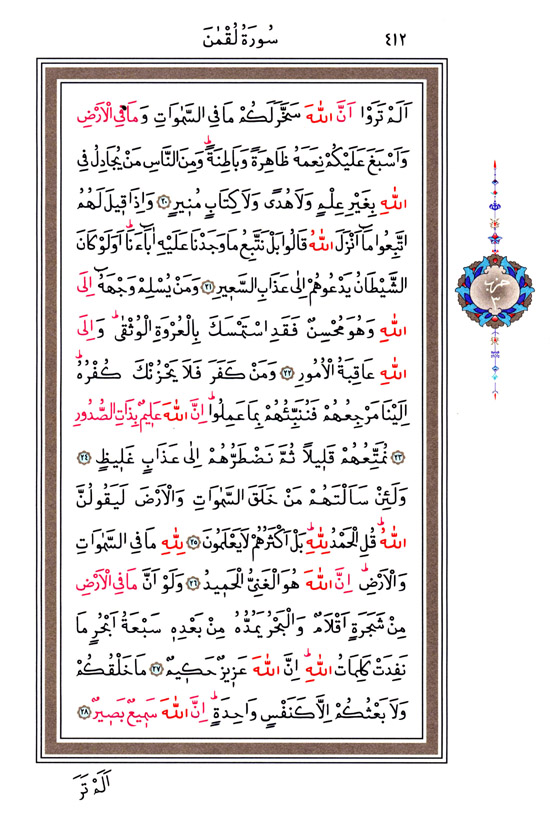 ٤١٢ سُورَةُ لُقْمٰنَ
اَلَمْ تَرَوْا اَنَّ اللّٰهَ سَخَّرَ لَكُمْ مَا فِي السَّمٰوَاتِ وَمَا فِي الْاَرْضِ
وَاَسْبَغَ عَلَيْكُمْ نِعَمَهُ ظَاهِرَةً وَبَاطِنَةًۜ وَمِنَ النَّاسِ مَنْ يُجَادِلُ فِي
اللّٰهِ بِغَيْرِ عِلْمٍ وَلَا هُدًى وَلَا كِتَابٍ مُنِيرٍ ﴿٢٠﴾ وَاِذَا قِيلَ لَهُمُ
اتَّبِعُوا مَٓا اَنْزَلَ اللّٰهُ قَالُوا بَلْ نَتَّبِعُ مَا وَجَدْنَا عَلَيْهِ اٰبَٓاءَنَاۜ اَوَلَوْ كَانَ
الشَّيْطَانُ يَدْعُوهُمْ اِلٰى عَذَابِ السَّعِيرِ ﴿٢١﴾ وَمَنْ يُسْلِمْ وَجْهَهُٓ اِلَى
اللّٰهِ وَهُوَ مُحْسِنٌ فَقَدِ اسْتَمْسَكَ بِالْعُرْوَةِ الْوُثْقٰىۜ وَاِلَى
اللّٰهِ عَاقِبَةُ الْاُمُورِ ﴿٢٢﴾ وَمَنْ كَفَرَ فَلَا يَحْزُنْكَ كُفْرُهُۜ
اِلَيْنَا مَرْجِعُهُمْ فَنُنَبِّئُهُمْ بِمَا عَمِلُواۜ اِنَّ اللّٰهَ عَلِيمٌ بِذَاتِ الصُّدُورِ
﴿٢٣﴾ نُمَتِّعُهُمْ قَلِيلًا ثُمَّ نَضْطَرُّهُمْ اِلٰى عَذَابٍ غَلِيظٍ ﴿٢٤﴾
وَلَئِنْ سَاَلْتَهُمْ مَنْ خَلَقَ السَّمٰوَاتِ وَالْاَرْضَ لَيَقُولُنَّ
اللّٰهُۜ قُلِ الْحَمْدُ لِلّٰهِۜ بَلْ اَكْثَرُهُمْ لَا يَعْلَمُونَ ﴿٢٥﴾ لِلّٰهِ مَا فِي السَّمٰوَاتِ
وَالْاَرْضِۜ اِنَّ اللّٰهَ هُوَ الْغَنِيُّ الْحَمِيدُ ﴿٢٦﴾ وَلَوْ اَنَّ مَا فِي الْاَرْضِ
مِنْ شَجَرَةٍ اَقْلَامٌ وَالْبَحْرُ يَمُدُّهُ مِنْ بَعْدِهِ سَبْعَةُ اَبْحُرٍ مَا
نَفِدَتْ كَلِمَاتُ اللّٰهِۜ اِنَّ اللّٰهَ عَزِيزٌ حَكِيمٌ ﴿٢٧﴾ مَا خَلْقُكُمْ
وَلَا بَعْثُكُمْ اِلَّا كَنَفْسٍ وَاحِدَةٍۜ اِنَّ اللّٰهَ سَمِيعٌ بَصِيرٌ ﴿٢٨﴾
حزب
٣
اَلَمْ تَرَ